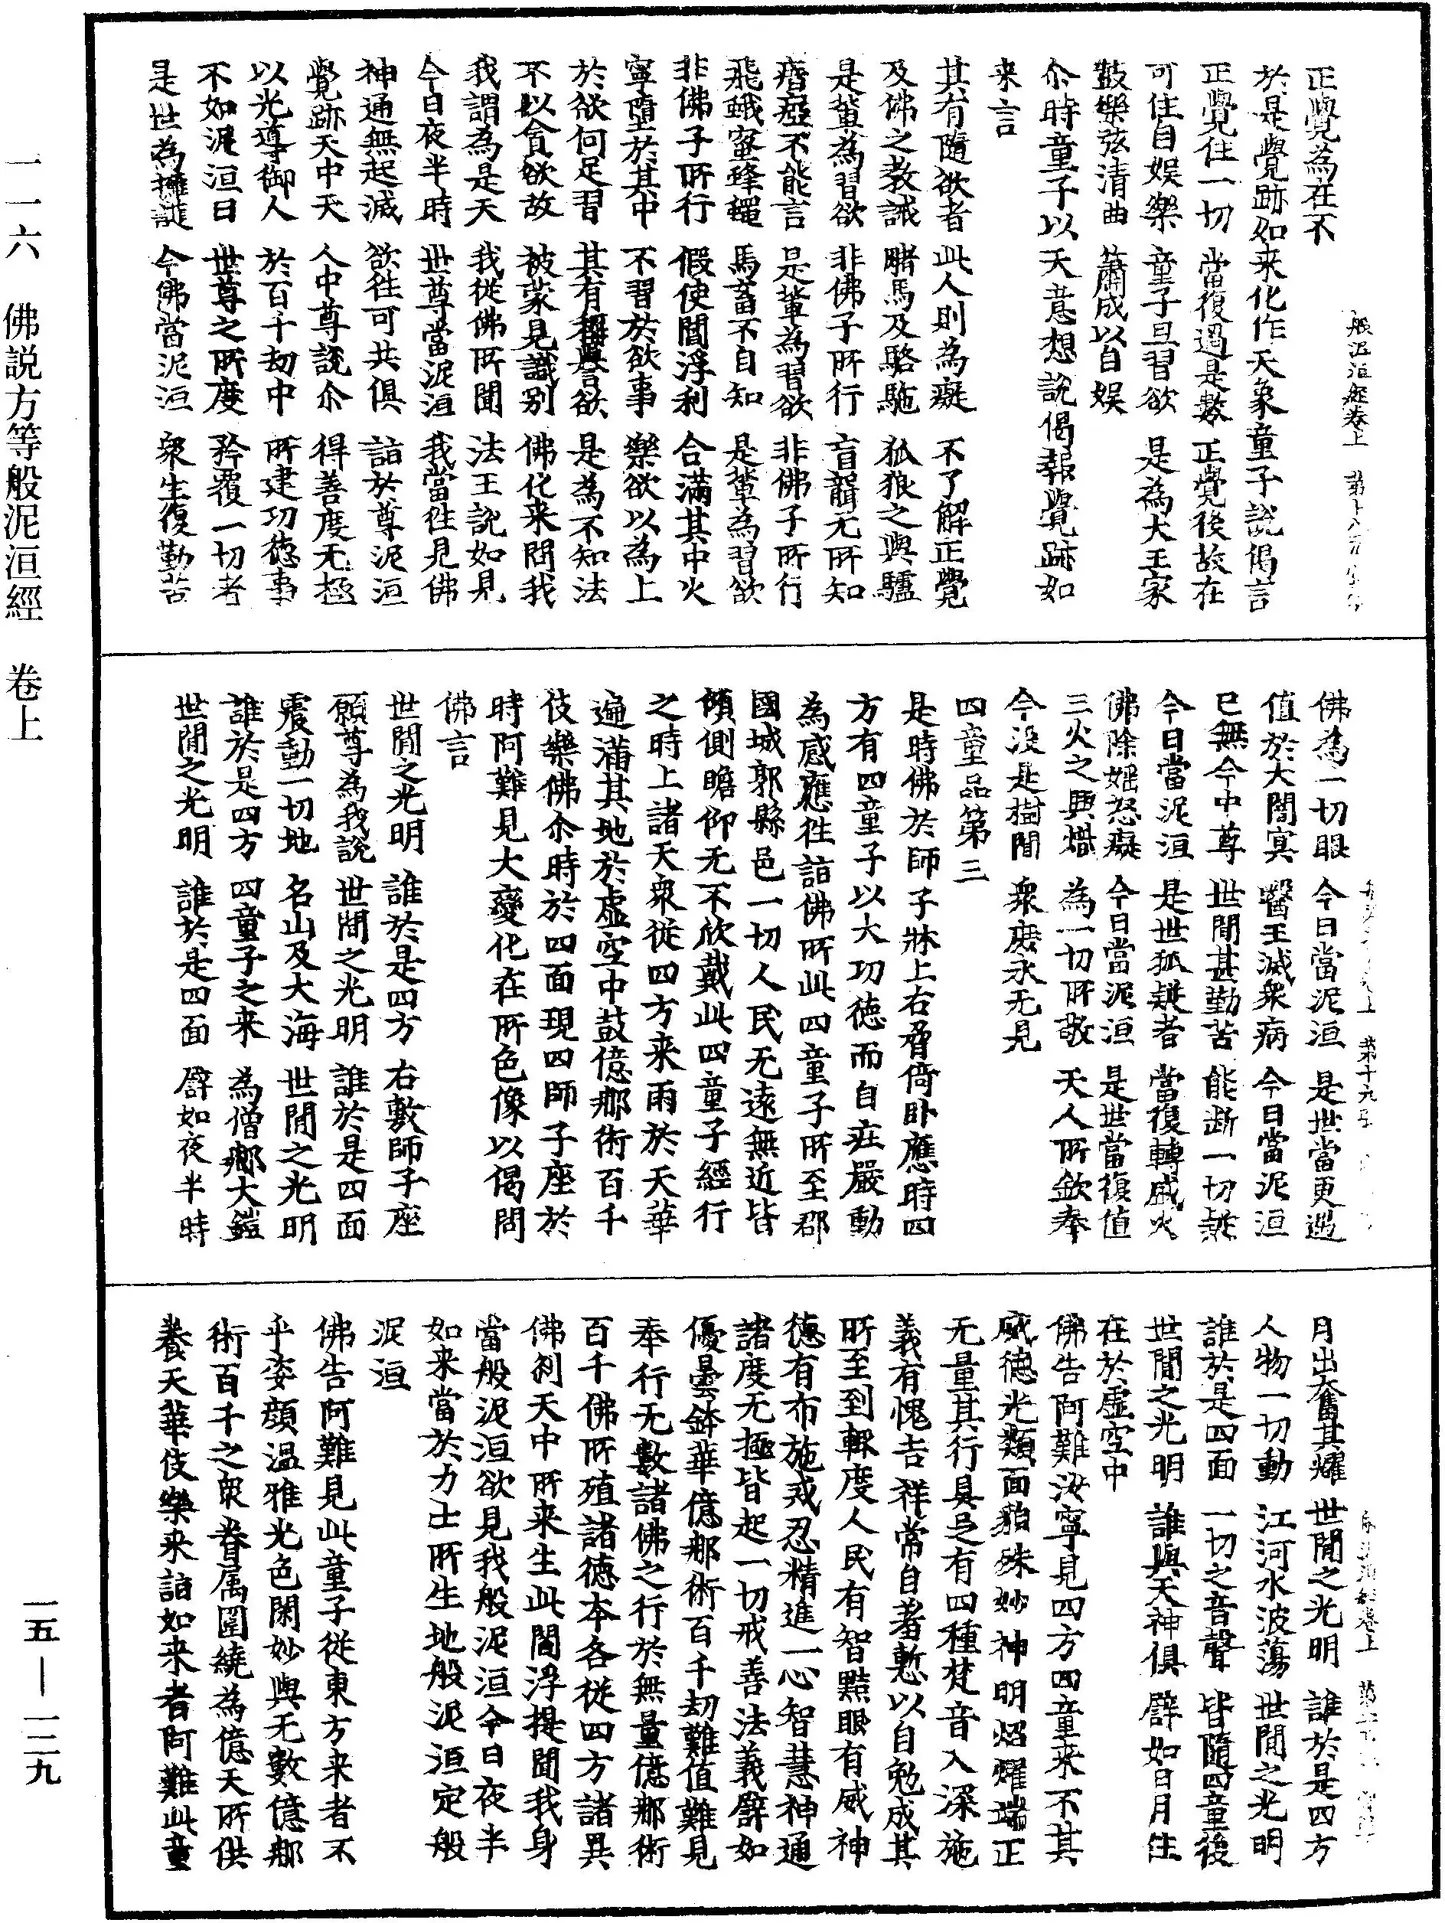 正覺為在不
於是覺跡如来化作天象童子說偈言
正覺住一切　當復過是數　正覺後故在
可住自娛樂　童子旦習欲　是為大王家
鼓樂弦清曲　簫成以自娛
尒時童子以天意想說偈報覺跡如
来言
其有隨欲者　此人則為癡　不了解正覺
及佛之教誡　賭馬及駱駞　狐狼之與驢
是輩為習欲　非佛子所行　盲聾无所知
瘖瘂不能言　是輩為習欲　非佛子所行
飛蛾蜜蜂蠅　馬畜不自知　是輩為習欲
非佛子所行　假使閻浮利　合滿其中火
寧墮於其中　不習於欲事　樂欲以為上
於欲何足習　其有稱譽欲　是為不知法
不以貪欲故　被蒙見識別　佛化来問我
我謂為是天　我從佛所聞　法王說如見
今日夜半時　世尊當泥洹　我當往見佛
神通無起滅　欲往可共俱　詣於尊泥洹
覺跡天中天　人中尊說尒　得善度无極
以光導御人　於百千劫中　所建功德事
不如泥洹日　世尊之所度　矜覆一切者
是世為擁護　今佛當泥洹　衆生復勤苦
佛為一切眼　今日當泥洹　是世當更遇
值於大闇冥　醫王滅衆病　今日當泥洹
已無今中尊　世間甚勤苦　能断一切疑
今日當泥洹　是世狐疑者　當復轉盛火
佛除婬怒癡　今日當泥洹　是世當復值
三火之興熾　為一切所敬　天人所欽奉
今没是樹間　衆磨永无見
四童品第三
是時佛於師子牀上右脅倚卧應時四
方有四童子以大功德而自莊嚴動
為感應往詣佛所此四童子所至郡
國城郭縣邑一切人民无遠無近皆
傾側瞻仰无不欣戴此四童子經行
之時上諸天衆從四方来雨於天華
遍滿其地於虛空中鼓億那術百千
伎樂佛尒時於四面現四師子座於
時阿難見大變化在所色像以偈問
佛言
世間之光明　誰於是四方　右敷師子座
願尊為我說　世間之光明　誰於是四面
震動一切地　名山及大海　世間之光明
誰於是四方　四童子之来　為僧鄉大鎧
世間之光明　誰於是四面　譬如夜半時
月出大奮其耀　世間之光明　誰於是四方
人物一切動　江河水波蕩　世間之光明
誰於是四面　一切之音聲　皆隨四童後
世間之光明　誰與天神俱　譬如日月住
在於虛空中
佛告阿難汝寧見四方四童来不其
威德光類面貌殊妙神明炤燿端正
无量其行具足有四種梵音入深施
義有愧吉祥常自羞慙以自勉成其
所至到輙度人民有智黠眼有威神
德有布施戒忍精進一心智慧神通
諸度无極皆起一切戒善法義譬如
優曇鉢華億那術百千劫難值難見
奉行无數諸佛之行於無量億那術
百千佛所殖諸德本各從四方諸異
佛剎天中所来生此閻浮提聞我身
當般泥洹欲見我般泥洹今日夜半
如来當於力士所生地般泥洹定般
泥洹
佛告阿難見此童子從東方来者不
乎姿顏温雅光色閑妙與无數億那
術百千之衆眷属圍繞為億天所供
養天華伎樂来詣如来者阿難此童
一一六　佛説方等般泥洹經　卷上
一五—一二九